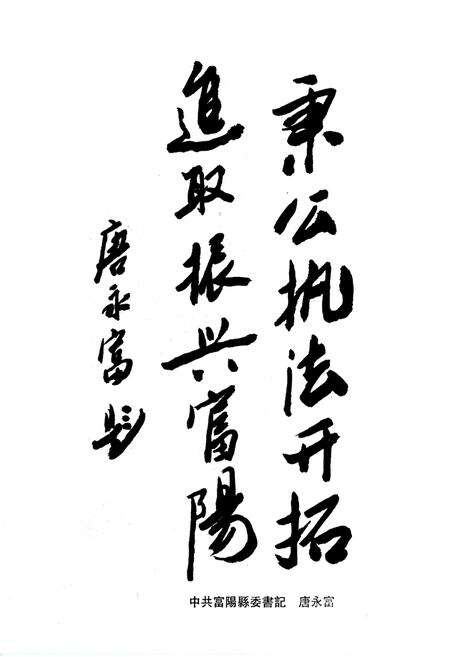 秉公执法开拓
進取振兴富陽
唐永富题
中共富陽縣委書記　唐永富